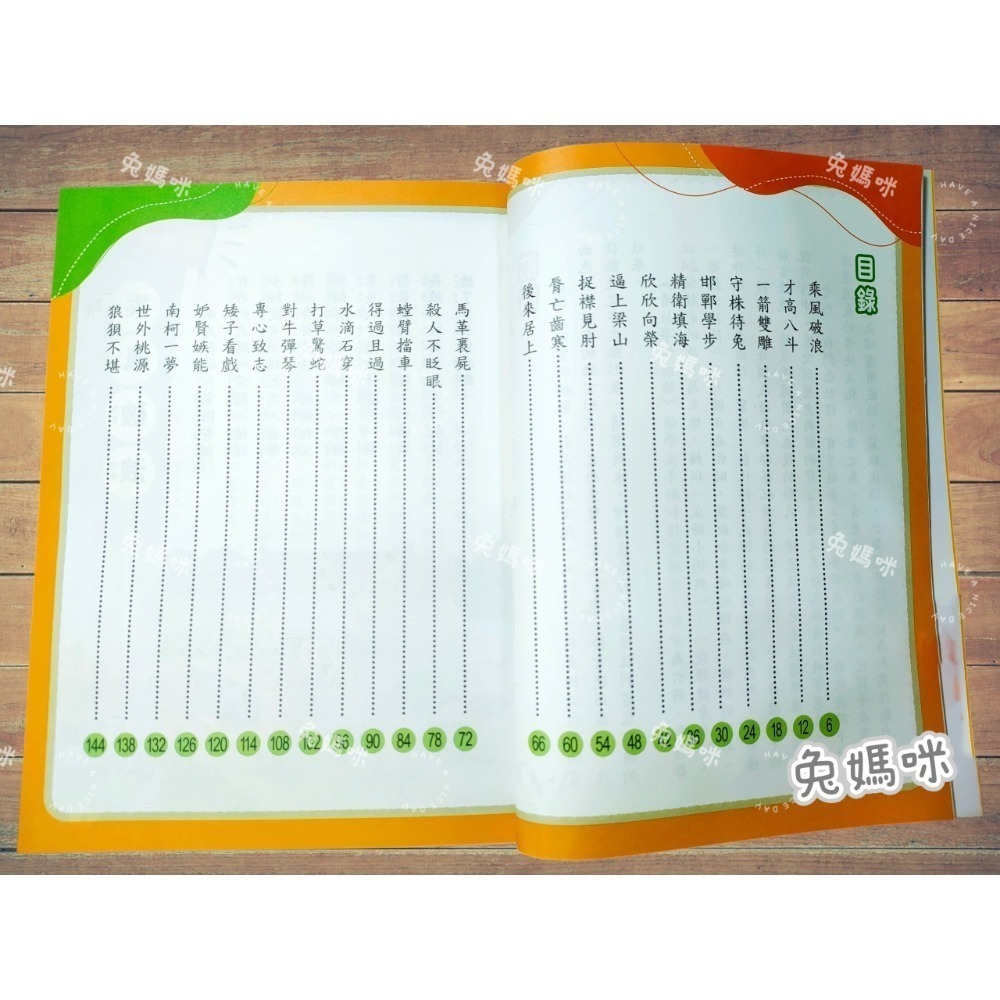 目錄
乘風破浪 6
才高八斗 12
一箭雙雕 18
守株待兔 24
邯鄲學步 30
精衛填海 36
欣欣向榮 42
逼上梁山 48
捉襟見肘 54
脣亡齒寒 60
後來居上 66
馬革裹屍 72
殺人不眨眼 78
螳臂擋車 84
得過且過 90
水滴石穿 96
打草驚蛇 102
對牛彈琴 108
專心致志 114
矮子看戲 120
妒賢嫉能 126
南柯一夢 132
世外桃源 138
狼狽不堪 144
兔媽咪
兔媽咪
HAVE A NICE DAY